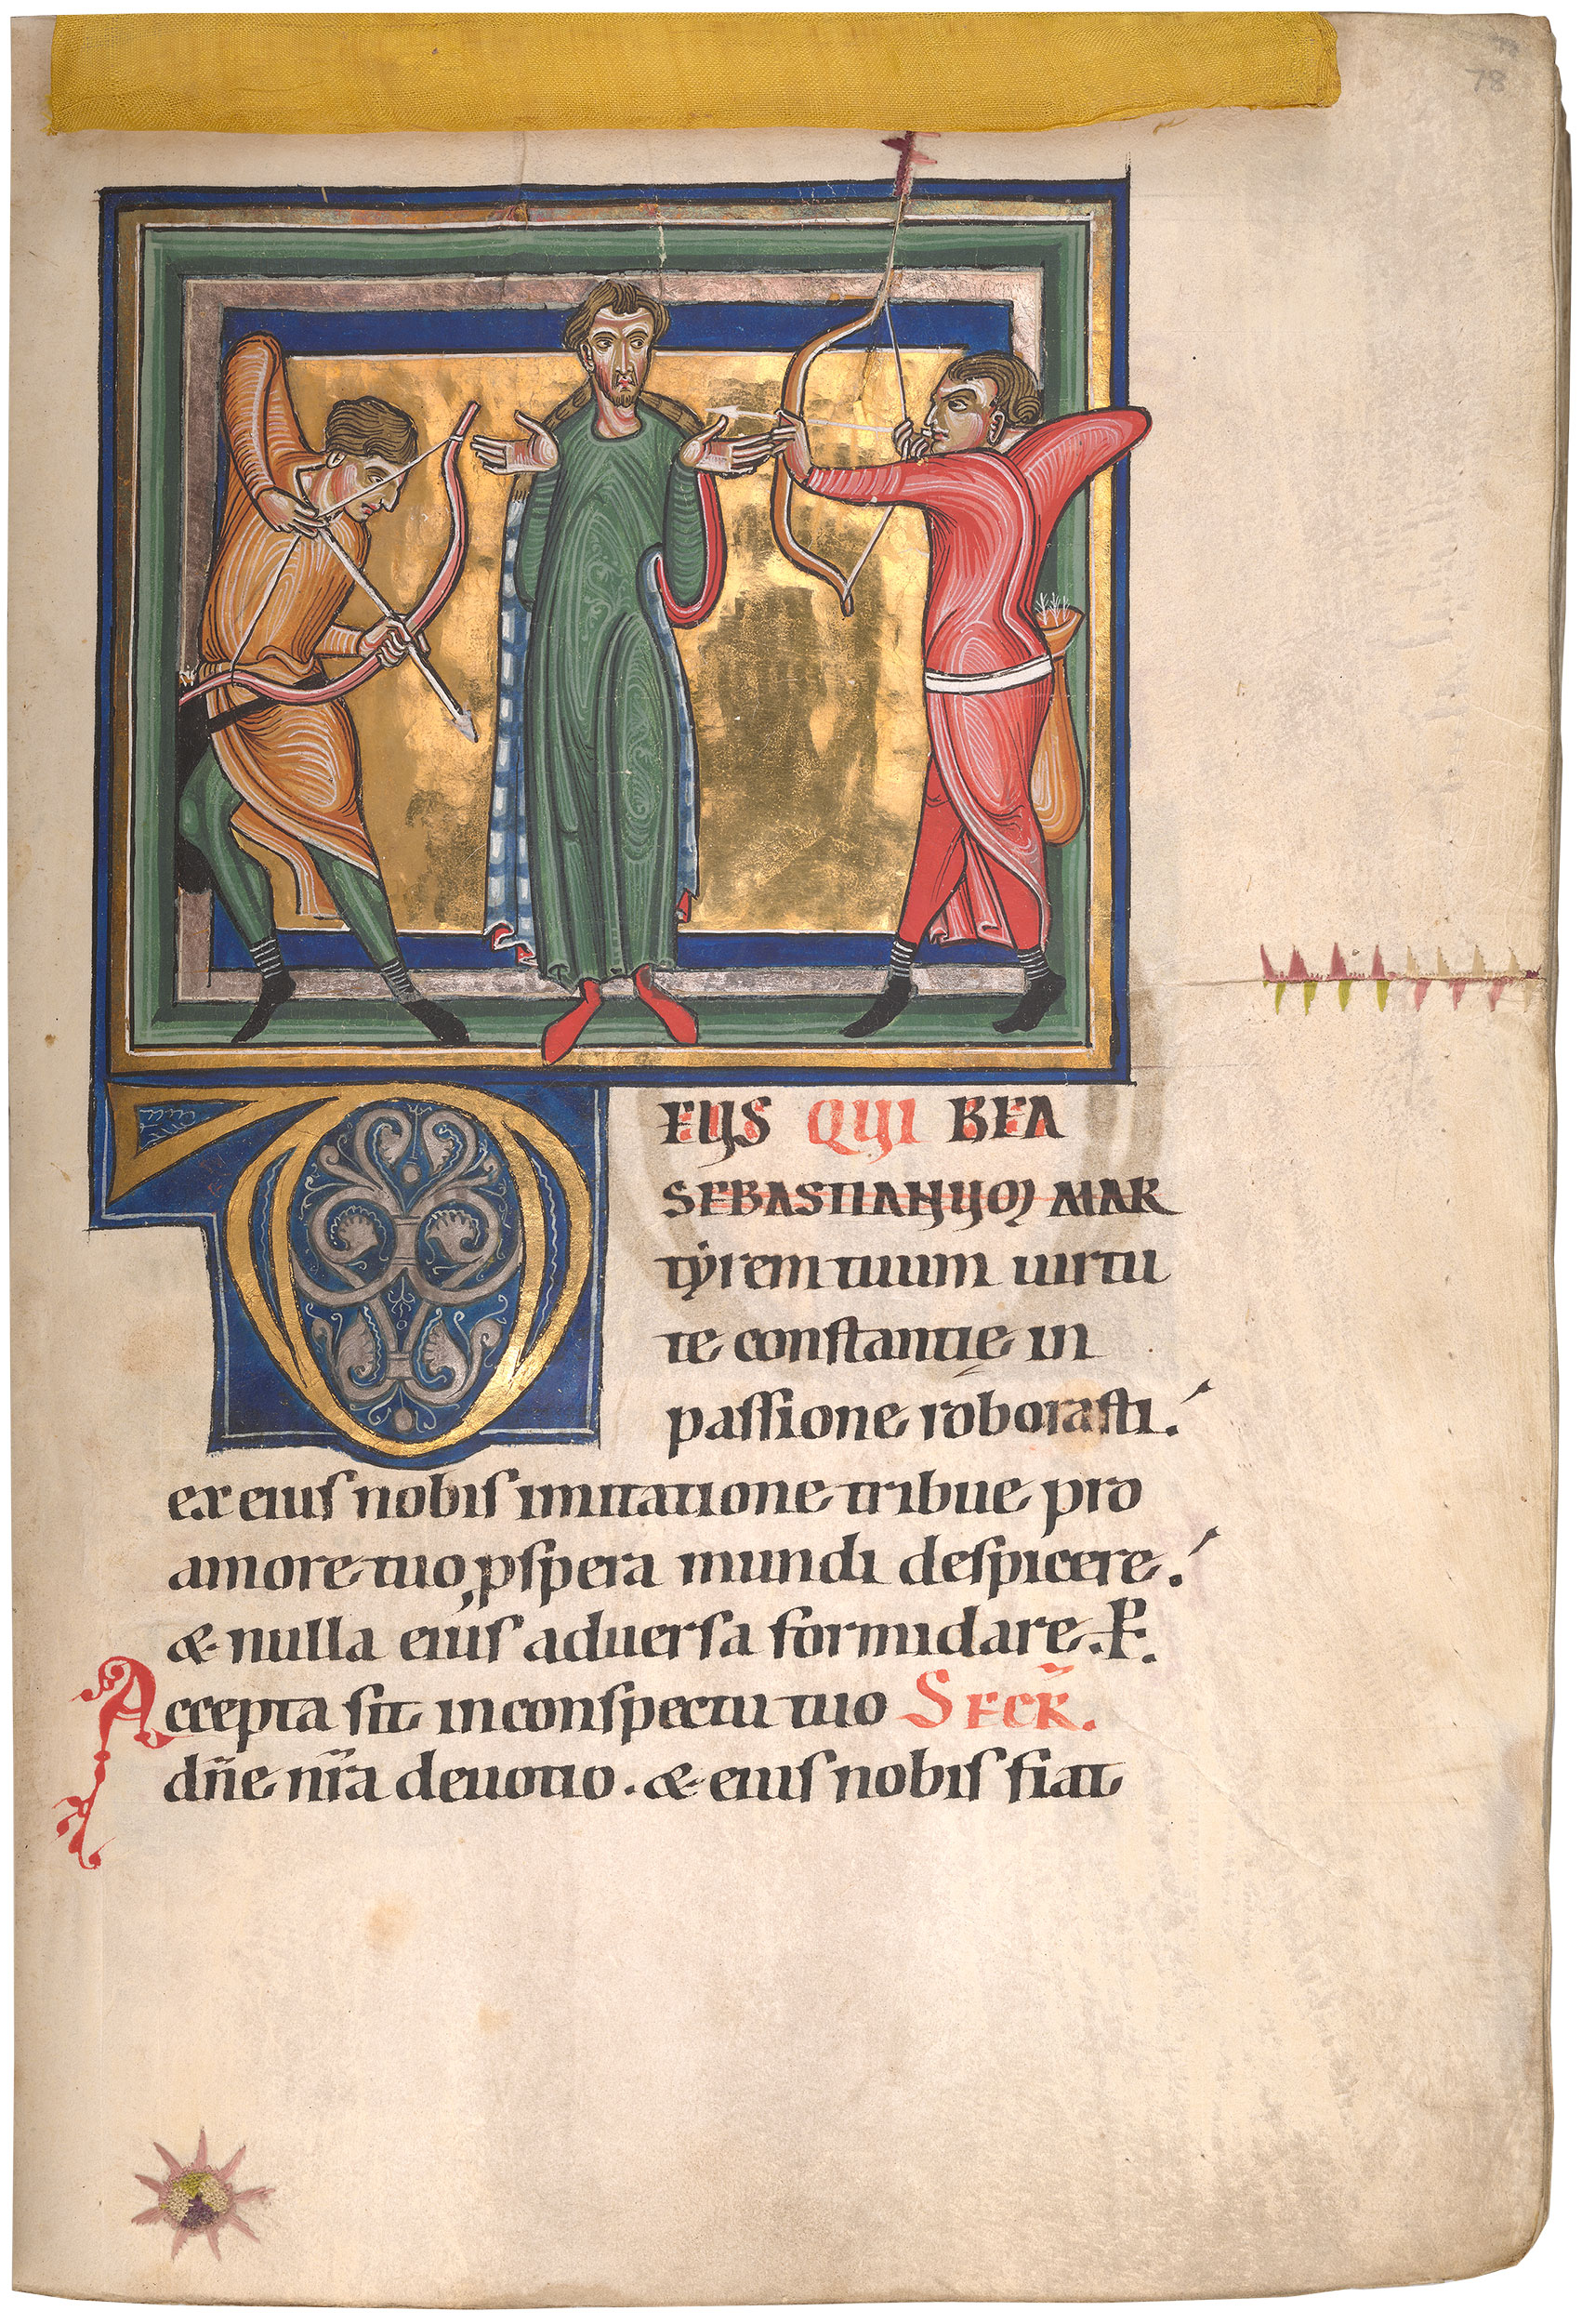 78
DEUS QUI BEA
SEBASTIANUM MAR
tyrem tuum uirtu
te constantię in
passione roborasti.
ex eius nobis imitatione tribue pro
amore tuo, ꝓspera mundi despicere.
& nulla eius aduersa formidare. P.
Accepta sit inconspectu tuo SECR̄.
dn̄e nr̄a deuotio. & eius nobis fiat